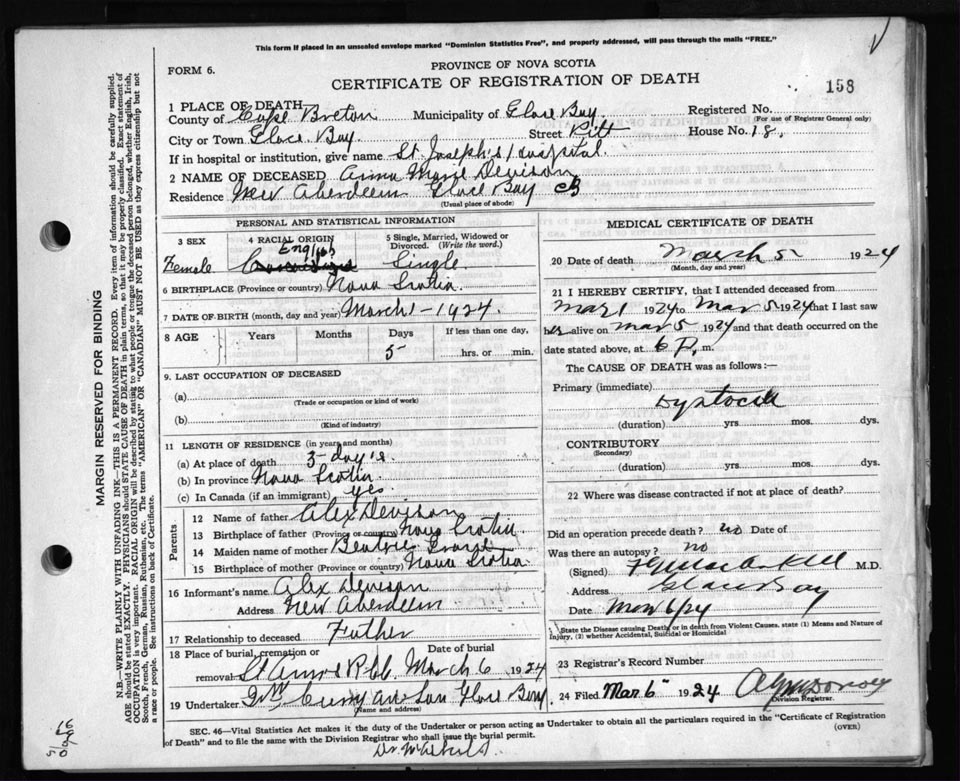 This form if placed in an unsealed envelope marked "Dominion Statistics Free", and properly addressed, will pass through the mails "FREE."
FORM 6.
PROVINCE OF NOVA SCOTIA
CERTIFICATE OF REGISTRATION OF DEATH
158
1 PLACE OF DEATH
County of Cape Breton Municipality of Glace Bay Registered No.
(For use of Registrar General only)
City or Town Glace Bay Street Pitt House No. 18.
If in hospital or institution, give name St. Joseph's Hospital.
2 NAME OF DECEASED Anna Marie Devison
Residence New Aberdeen Glace Bay CB
(Usual place of abode)
PERSONAL AND STATISTICAL INFORMATION
3 SEX 4 RACIAL ORIGIN 5 Single, Married, Widowed or Divorced. (Write the word.)
Female English Single
6 BIRTHPLACE (Province or country) Nova Scotia
7 DATE OF BIRTH (month, day and year) March 1 - 1924.
8 AGE Years Months Days If less than one day,
5 hrs. or min.
9. LAST OCCUPATION OF DECEASED
(a)
(Trade or occupation or kind of work)
(b)
(Kind of industry)
11 LENGTH OF RESIDENCE (in years and months)
(a) At place of death 3-day's.
(b) In province Nova Scotia
(c) In Canada (if an immigrant) yes
Parents
12 Name of father Alex Devison
13 Birthplace of father (Province or country) Nova Scotia
14 Maiden name of mother Beatrice
15 Birthplace of mother (Province or country) Nova Scotia.
16 Informant's name Alex Devison
Address New Aberdeen
17 Relationship to deceased Father
18 Place of burial, cremation or removal Date of burial
St Anns March 6 1924
19 Undertaker Curry and Son Glace Bay
(Name and address)
MEDICAL CERTIFICATE OF DEATH
20 Date of death March 5 1924
(Month, day and year)
21 I HEREBY CERTIFY, that I attended deceased from
Mar 1 1924 to Mar 5 1924 that I last saw
her alive on mar 5 1924 and that death occurred on the
date stated above, at 6 P. m.
The CAUSE OF DEATH was as follows:—
Primary (immediate)
Dystocia
(duration) yrs. mos. dys.
CONTRIBUTORY
(Secondary)
(duration) yrs. mos. dys.
22 Where was disease contracted if not at place of death?
Did an operation precede death? no Date of
Was there an autopsy? no
(Signed) M.D.
Address Glace Bay
Date Mar 6/24
State the Disease causing Death or in death from Violent Causes, state (1) Means and Nature of
Injury, (2) whether Accidental, Suicidal or Homicidal
23 Registrar's Record Number
24 Filed Mar 6 1924
Division Registrar.
SEC. 46—Vital Statistics Act makes it the duty of the Undertaker or person acting as Undertaker to obtain all the particulars required in the "Certificate of Registration
of Death" and to file the same with the Division Registrar who shall issue the burial permit.
(OVER)
MARGIN RESERVED FOR BINDING
N.B.—WRITE PLAINLY WITH UNFADING INK—THIS IS A PERMANENT RECORD. Every item of information should be carefully supplied.
AGE should be stated EXACTLY. PHYSICIANS should STATE CAUSE OF DEATH in plain terms, so that it may be properly classified. Exact statement of
OCCUPATION is very important. RACIAL ORIGIN will be described by stating to what people or tongue the deceased person belonged, whether English, Irish,
Scotch, French, German, Russian, Ruthenian, etc. The terms "AMERICAN" OR "CANADIAN" MUST NOT BE USED as they express citizenship but not
a race or people. See instructions on back of Certificate.